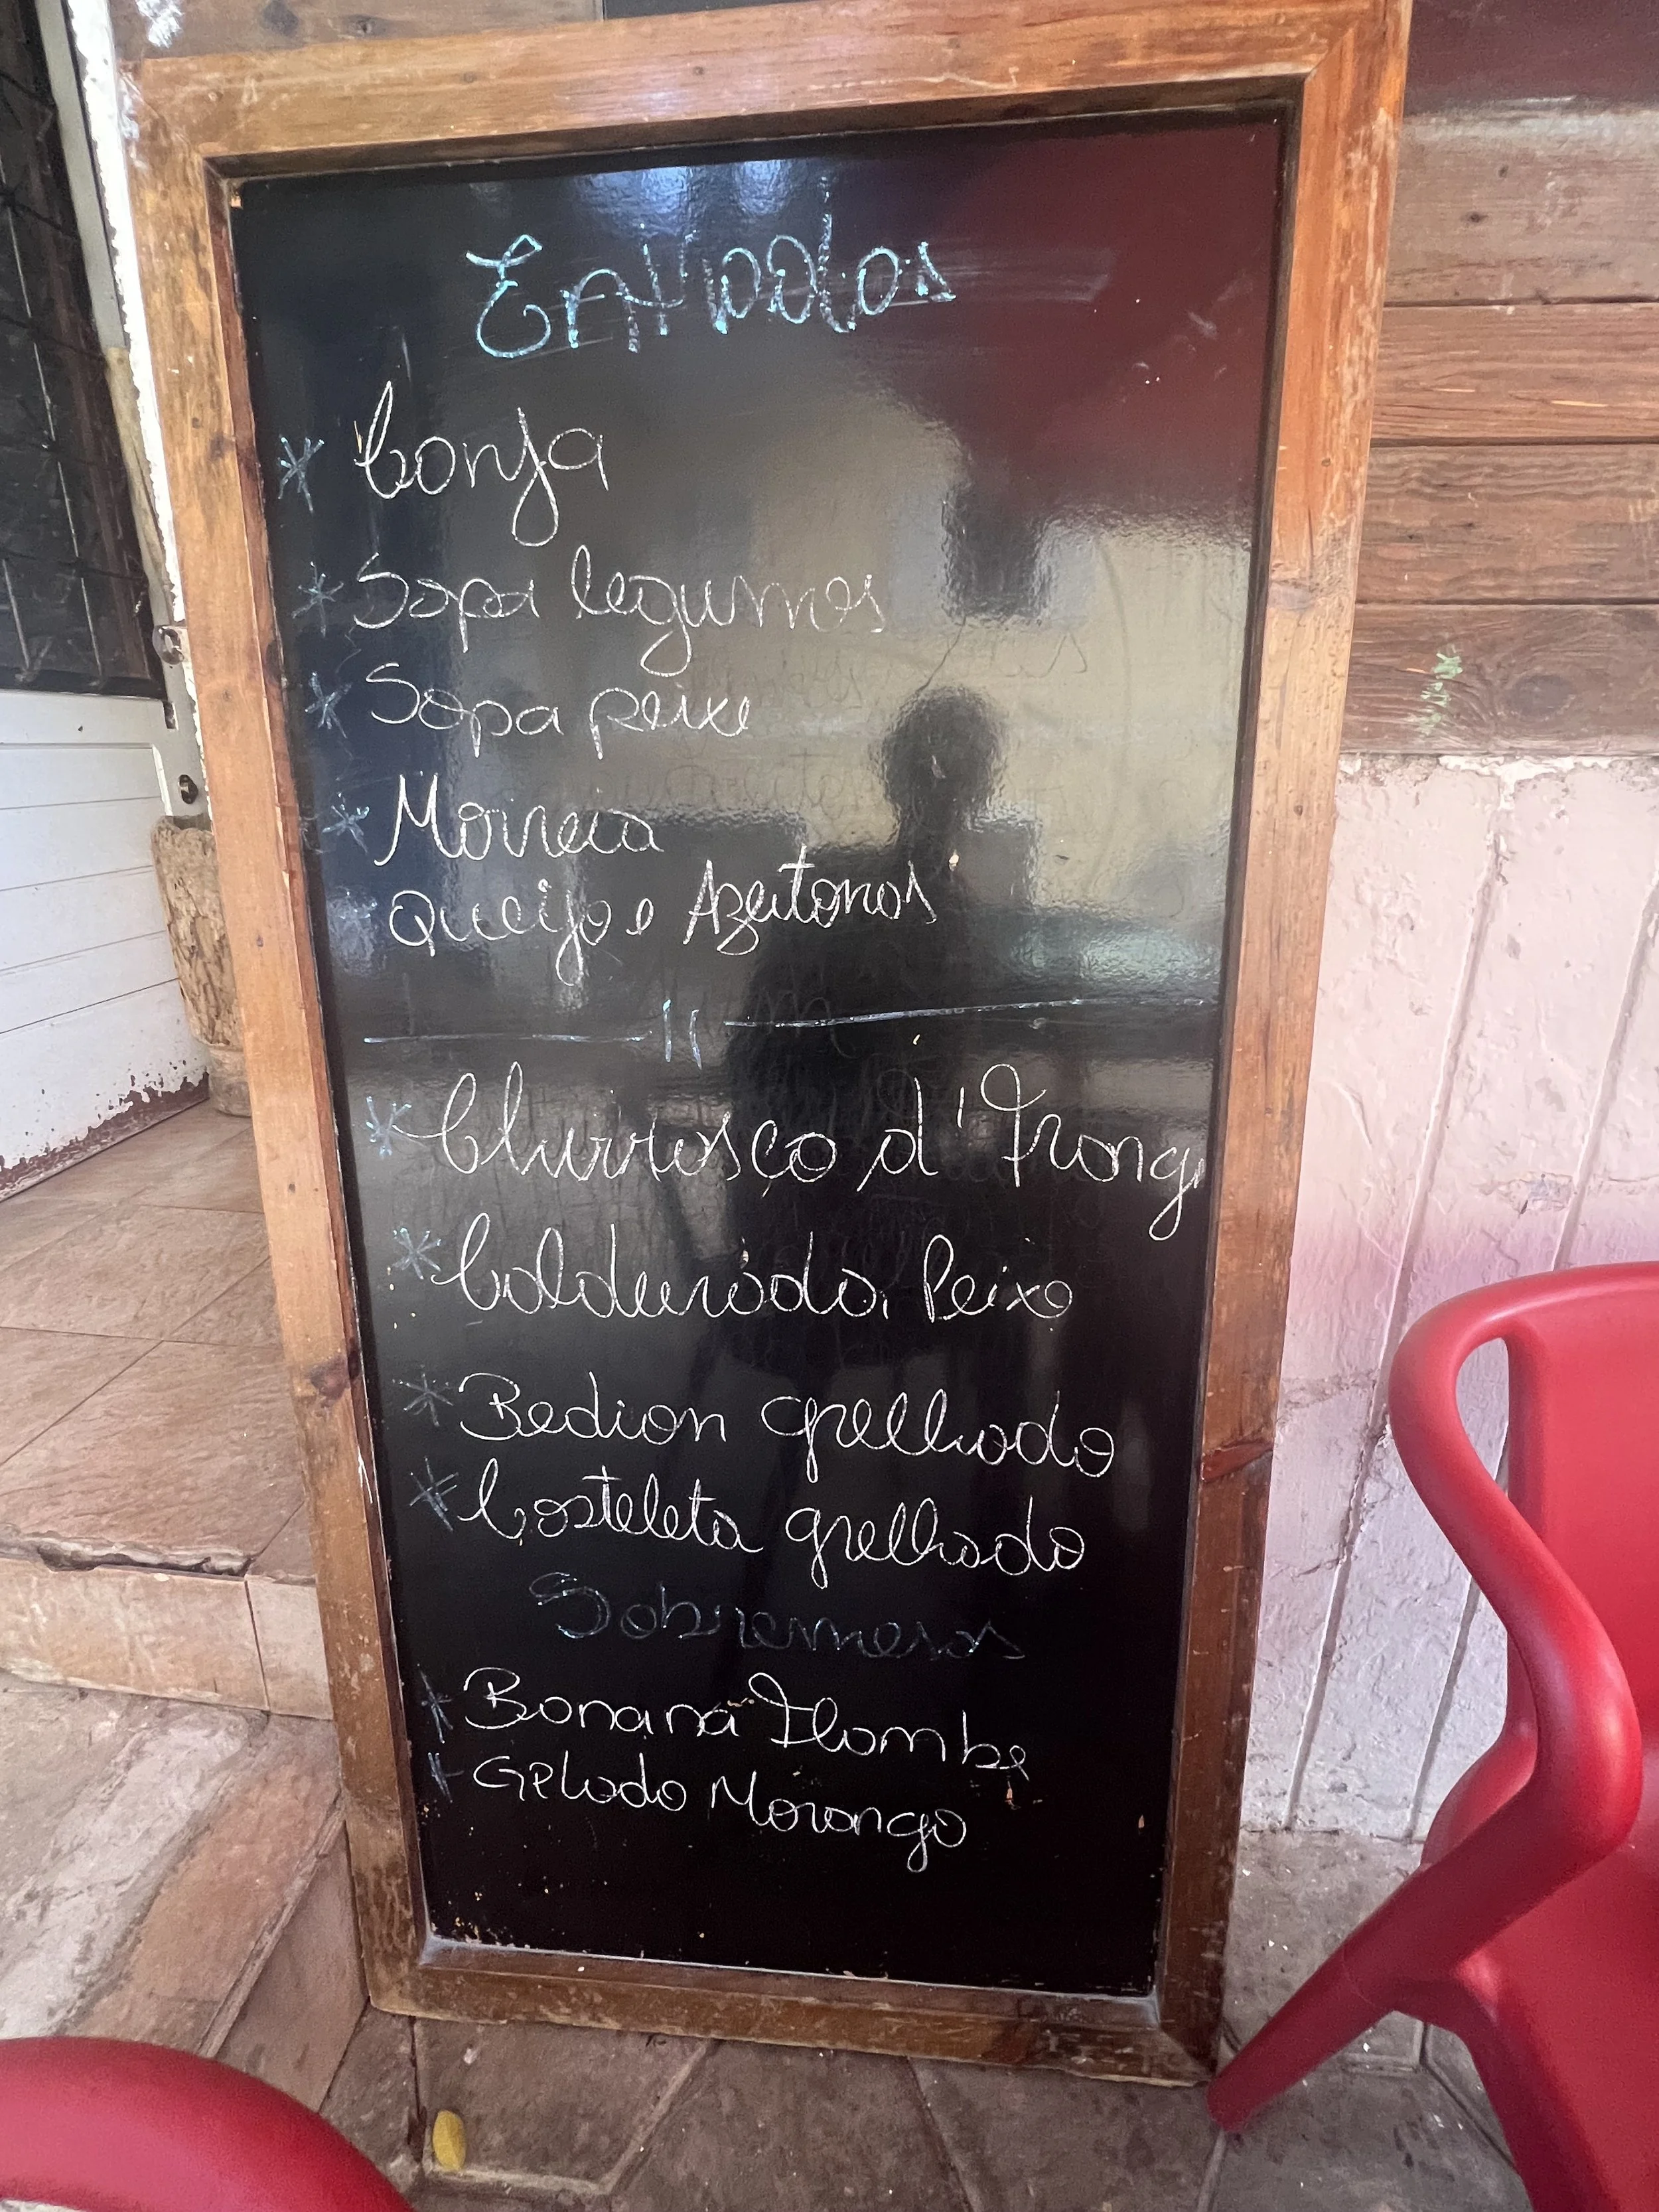 Entradas
* Conja
* Sopa legumes
* Sopa peixe
* Morreia
Queijo e Azeitonas
* Churrosco d' Frang
* Caldeirada Peixe
* Bedion grelhado
* Costeleta grelhado
Sobremesas
* Banana Flambe
* Gelado Morango